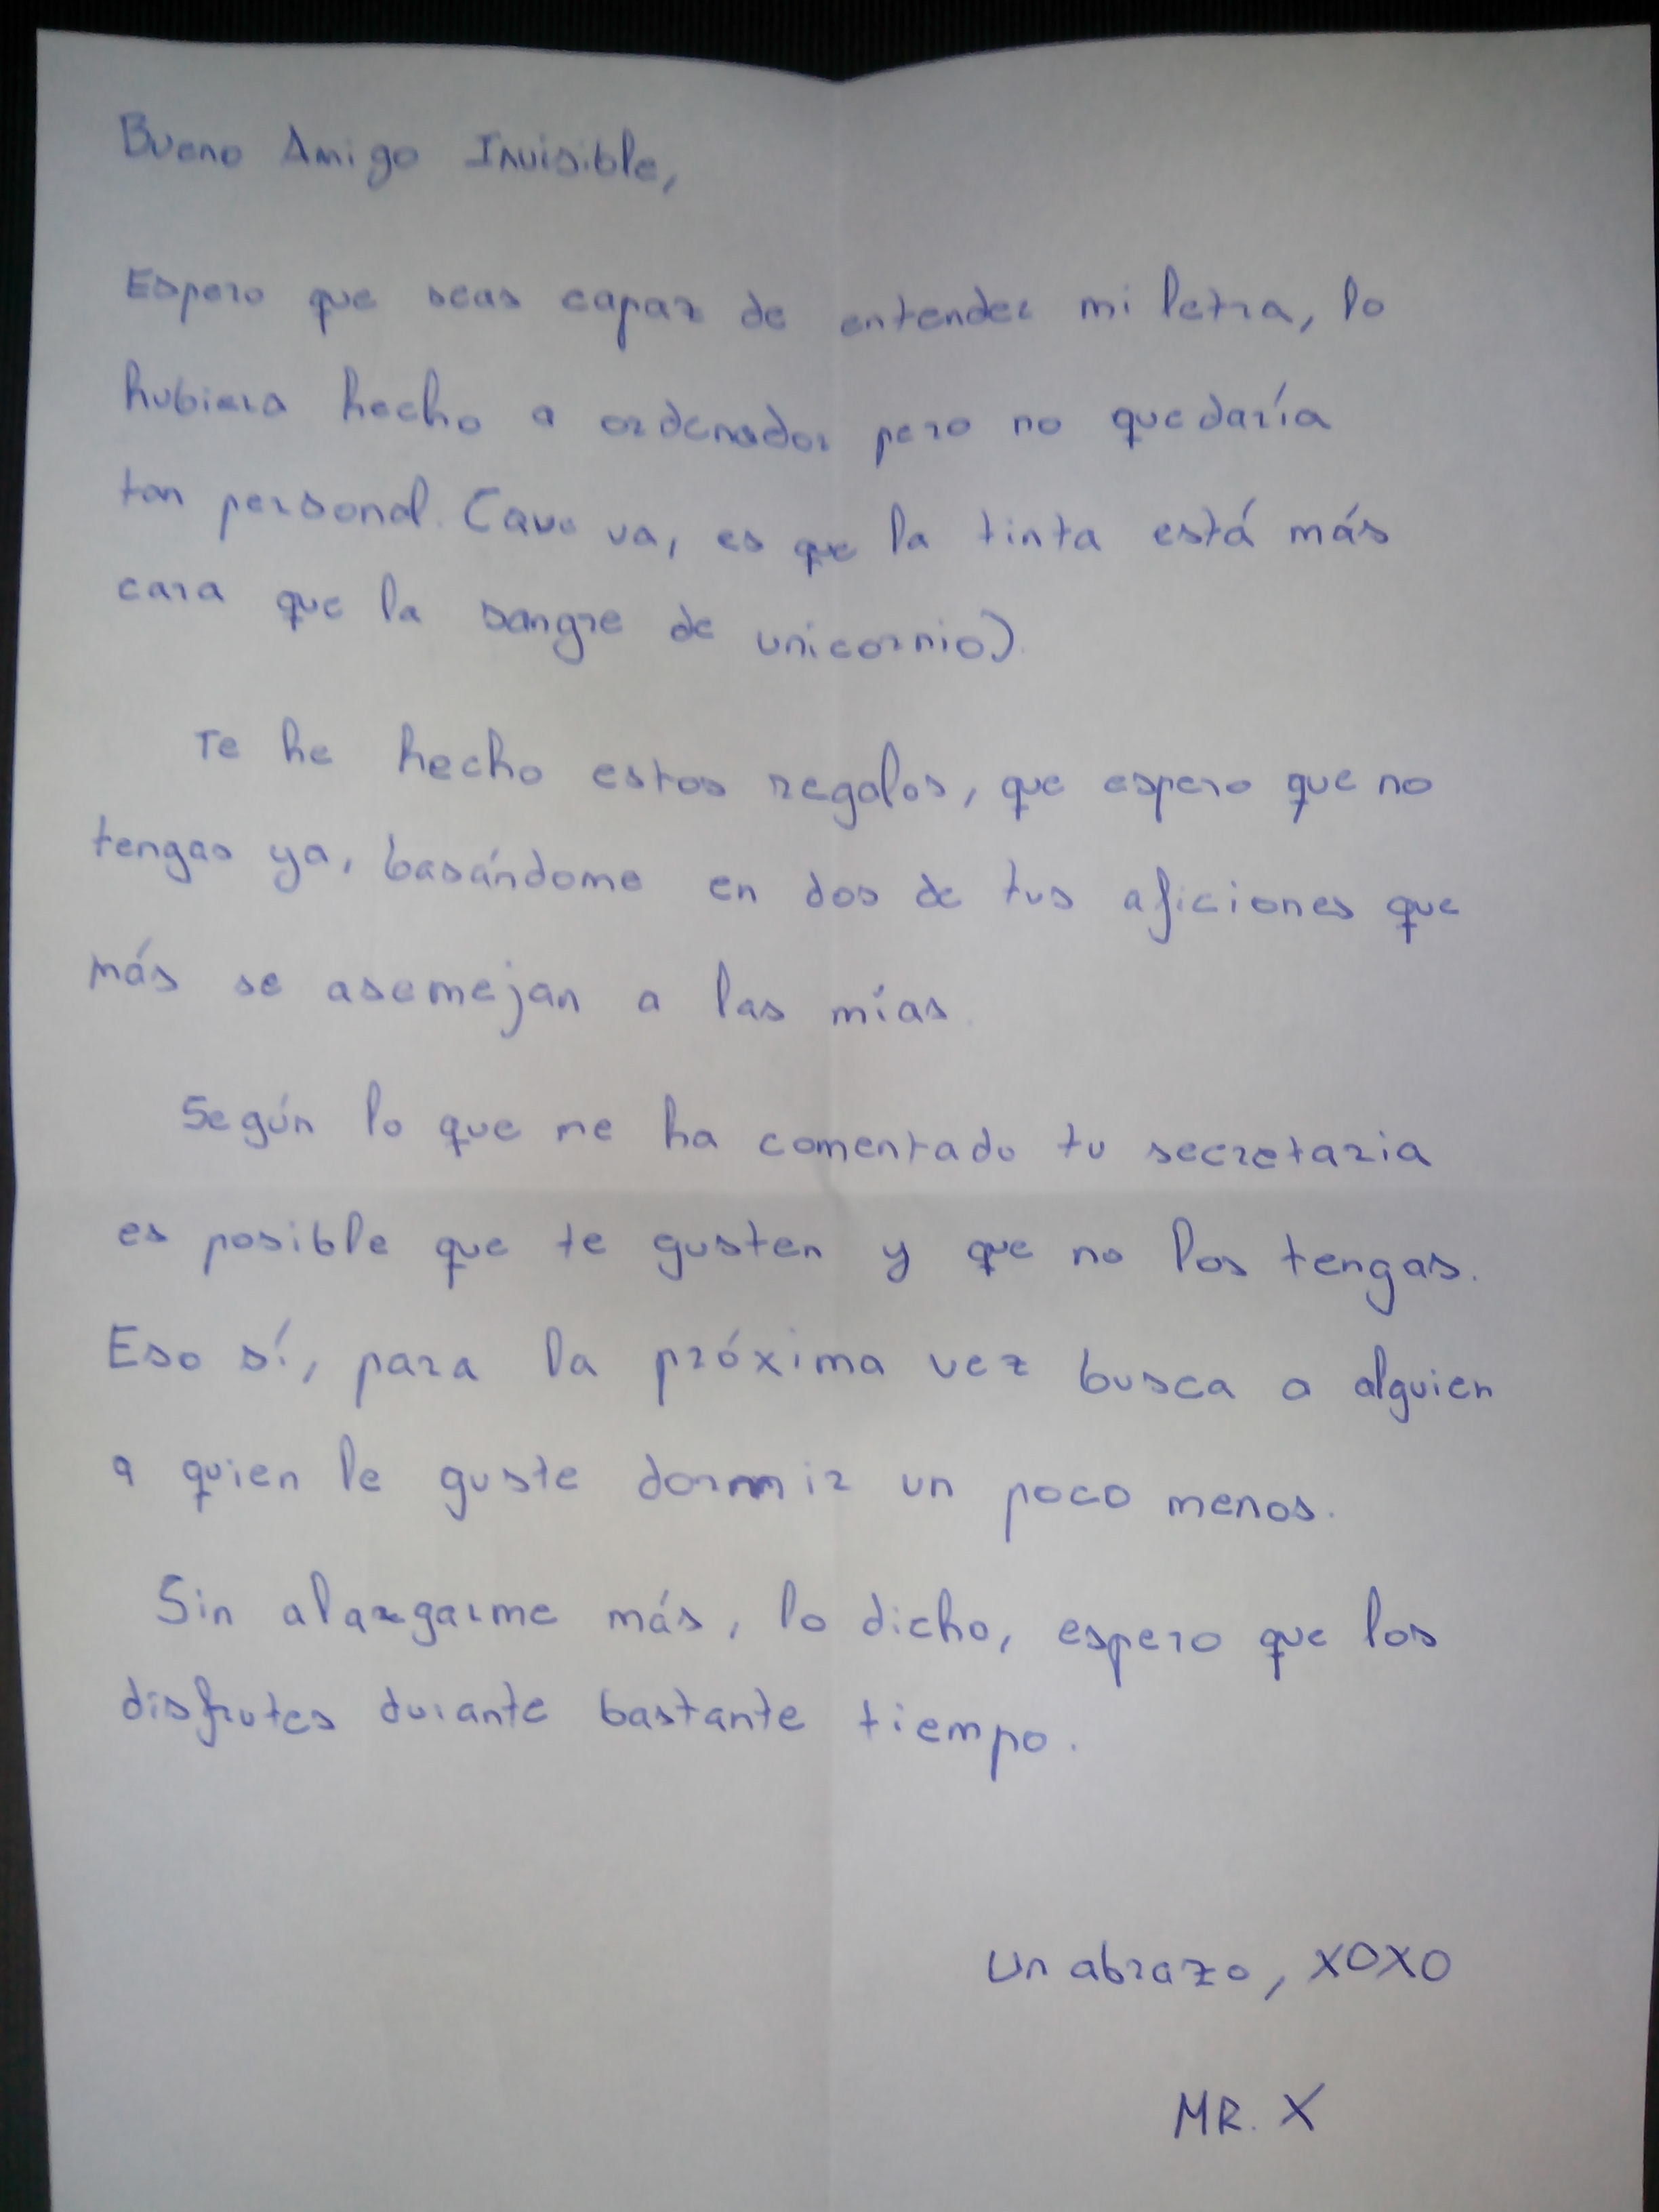 Bueno Amigo Invisible,
Espero que seas capaz de entender mi letra, lo
hubiera hecho a ordenador pero no quedaría
tan personal. (Que va, es que la tinta está más
cara que la sangre de unicornio).
Te he hecho estos regalos, que espero que no
tengas ya, basándome en dos de tus aficiones que
más se asemejan a las mías.
Según lo que me ha comentado tu secretaria
es posible que te gusten y que no los tengas.
Eso sí, para la próxima vez busca a alguien
a quien le guste dormir un poco menos.
Sin alargarme más, lo dicho, espero que los
disfrutes durante bastante tiempo.
Un abrazo, XOXO
MR. X